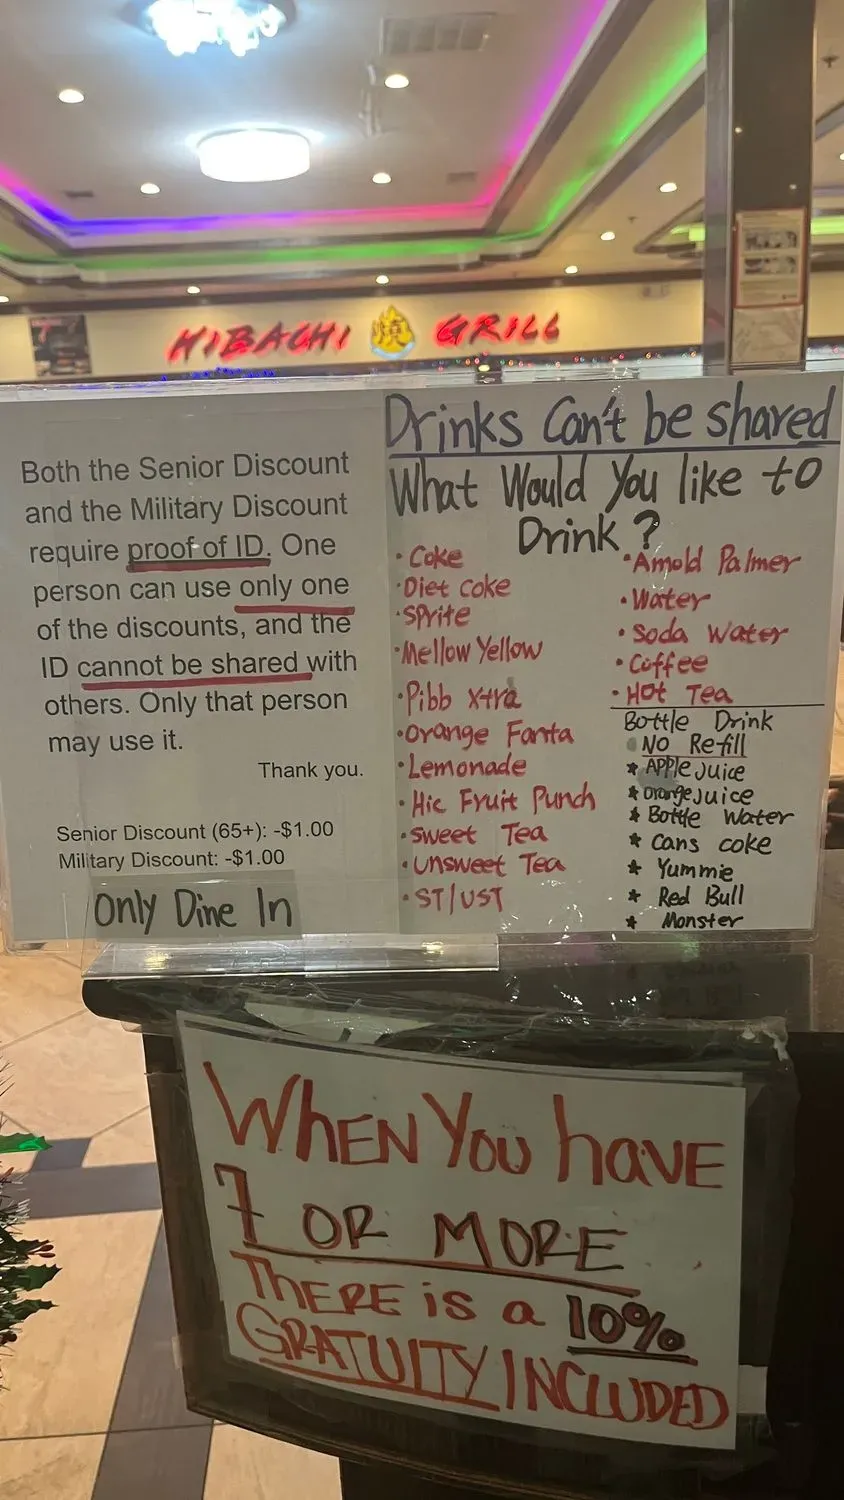 HIBACHI 燒 GRILL
Both the Senior Discount
and the Military Discount
require proof of ID. One
person can use only one
of the discounts, and the
ID cannot be shared with
others. Only that person
may use it.
Thank you.
Senior Discount (65+): -$1.00
Military Discount: -$1.00
Only Dine In
Drinks Can't be shared
What Would You like to
Drink?
• Coke
• Diet Coke
• Sprite
• Mellow Yellow
• Pibb xtra
• Orange Fanta
• Lemonade
• Hic Fruit Punch
• Sweet Tea
• Unsweet Tea
• ST/UST
• Arnold Palmer
• Water
• Soda Water
• Coffee
• Hot Tea
Bottle Drink
NO Refill
* Apple Juice
* Orange Juice
* Bottle Water
* Cans coke
* Yummie
* Red Bull
* Monster
WhEN You haVE
7 OR MORE
ThERE is a 10%
GRATUITY INCLUDED